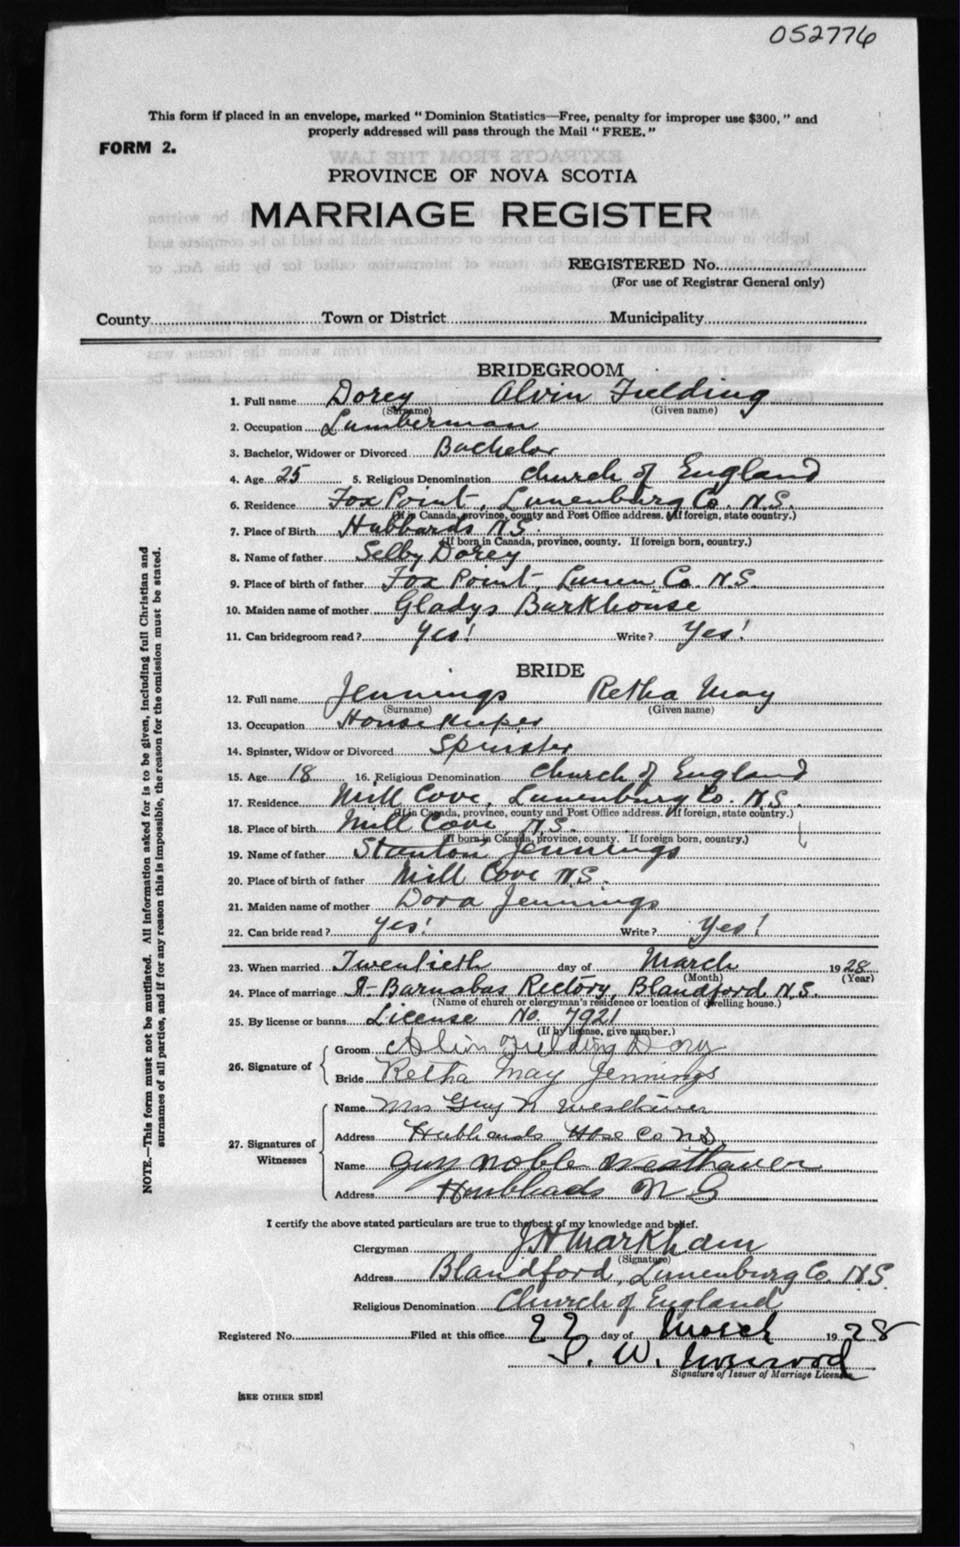 052776
This form if placed in an envelope, marked "Dominion Statistics—Free, penalty for improper use $300," and
properly addressed will pass through the Mail "FREE."
FORM 2.
PROVINCE OF NOVA SCOTIA
MARRIAGE REGISTER
REGISTERED No.
(For use of Registrar General only)
County Town or District Municipality
BRIDEGROOM
1. Full name Dorey Alvin Fielding
(Surname) (Given name)
2. Occupation Lumberman
3. Bachelor, Widower or Divorced Bachelor
4. Age 25 5. Religious Denomination Church of England
6. Residence Fox Point, Lunenburg Co. N.S.
(If in Canada, province, county and Post Office address. If foreign, state country.)
7. Place of Birth Hubbards N.S.
(If born in Canada, province, county. If foreign born, country.)
8. Name of father Selby Dorey
9. Place of birth of father Fox Point, Lunen Co. N.S.
10. Maiden name of mother Gladys Barkhouse
11. Can bridegroom read? Yes! Write? Yes!
BRIDE
12. Full name Jennings Retha May
(Surname) (Given name)
13. Occupation Housekeeper
14. Spinster, Widow or Divorced Spinster
15. Age 18 16. Religious Denomination Church of England
17. Residence Mill Cove, Lunenburg Co. N.S.
(If in Canada, province, county and Post Office address. If foreign, state country.)
18. Place of birth Mill Cove, N.S.
(If born in Canada, province, county. If foreign born, country.)
19. Name of father Stanton Jennings
20. Place of birth of father Mill Cove N.S.
21. Maiden name of mother Dora Jennings
22. Can bride read? Yes! Write? Yes!
23. When married Twentieth day of March 1928
(Month) (Year)
24. Place of marriage St Barnabas Rectory, Blandford N.S.
(Name of church or clergyman's residence or location of dwelling house.)
25. By license or banns License No. 7921
(If by license, give number.)
26. Signature of Groom Alvin Fielding Dory
Bride Retha May Jennings
27. Signatures of Witnesses Name Mrs Guy N Westhaver
Address Hubbards Co NS
Name Guy Noble Westhaver
Address N S
I certify the above stated particulars are true to the best of my knowledge and belief.
Clergyman J H Markham
(Signature)
Address Blandford, Lunenburg Co. N.S.
Religious Denomination Church of England
Registered No. Filed at this office 22 day of March 1928
W.
Signature of Issuer of Marriage License
[SEE OTHER SIDE]
NOTE.—This form must not be mutilated. All information asked for is to be given, including full Christian and
surnames of all parties, and if for any reason this is impossible, the reason for the omission must be stated.